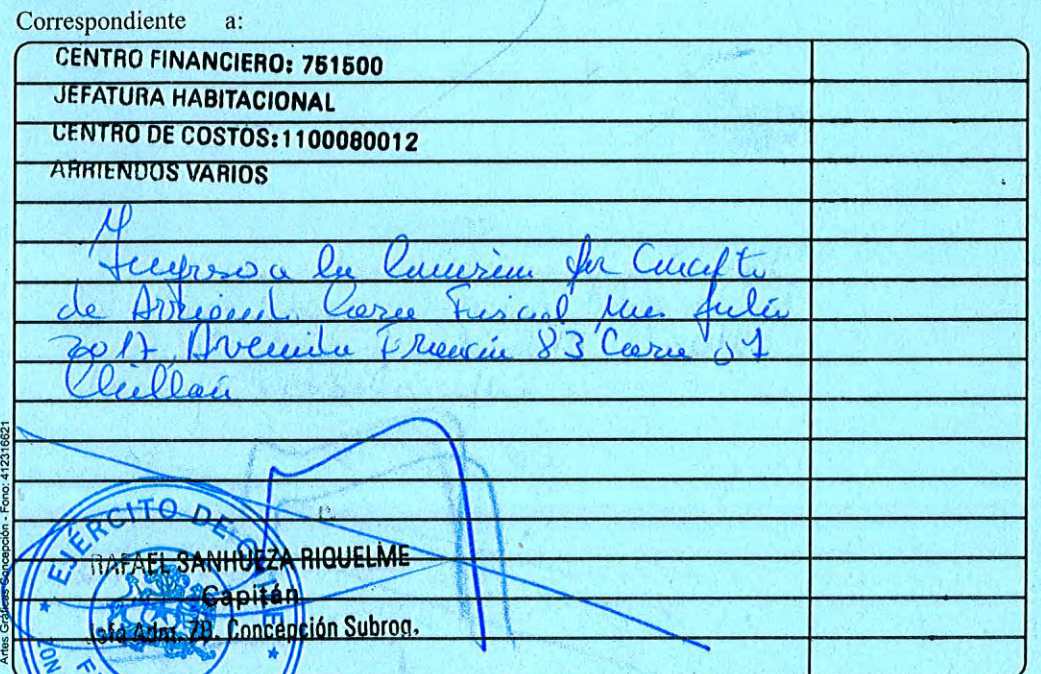 Correspondiente a:
CENTRO FINANCIERO: 751500
JEFATURA HABITACIONAL
CENTRO DE COSTOS:1100080012
ARRIENDOS VARIOS
Ingreso a la por Concepto
de Arriendo Casa Fiscal Mes Julio
2017, Avenida Francia 83 Casa 07
Chillán
EJÉRCITO DE
RAFAEL SANHUEZA RIQUELME
Capitán
Adm. ZB. Concepción Subrog.
Artes Gráficas Concepción - Fono: 412316621